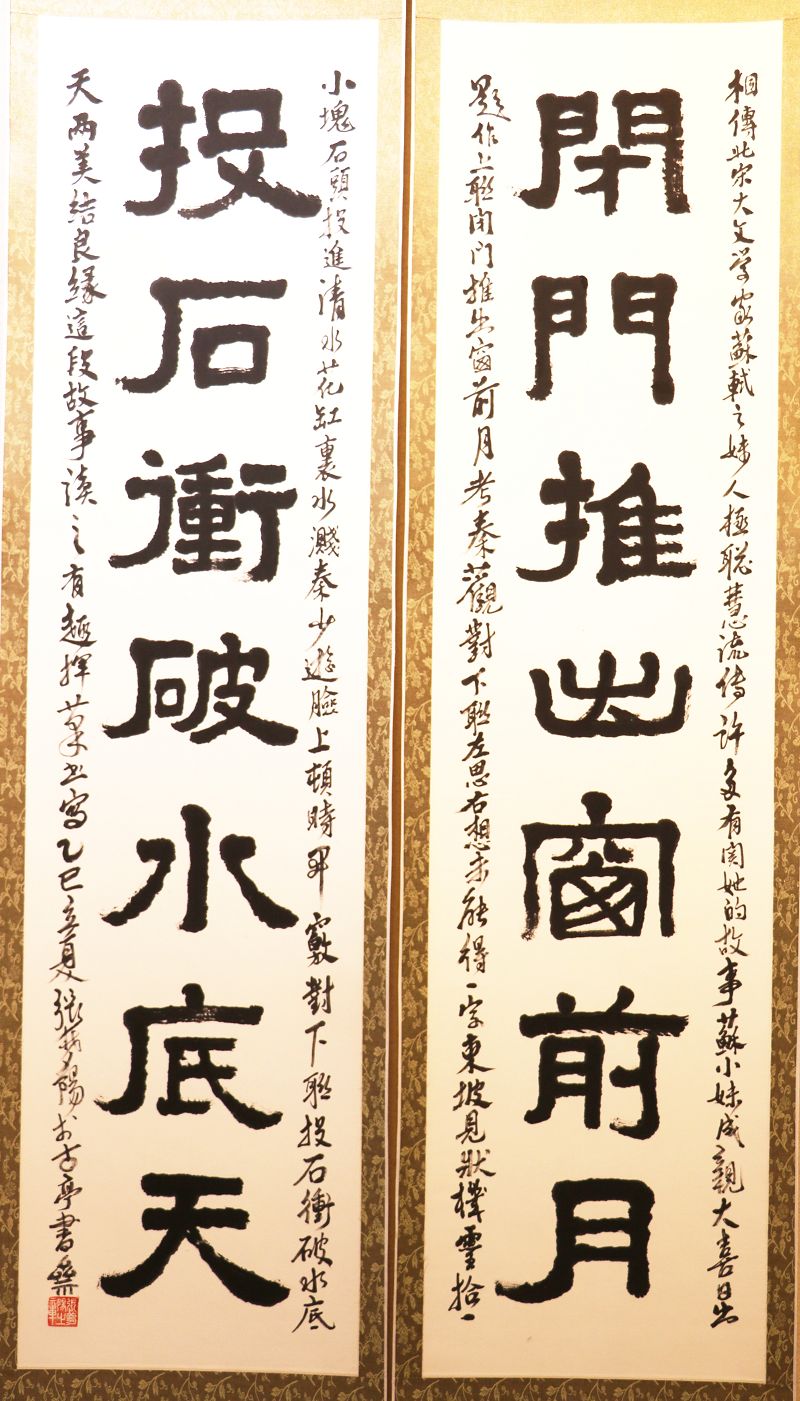 相傳北宋大文学家蘇軾之妹人極聡慧流传许多有関她的故事蘇小妹成親大喜日出
閉門推出窗前月
題作上联闭门推出窗前月考秦觀對下联左思右想未能得一字東坡見狀機靈拾一
小塊石頭投進清水花缸裏水濺秦少遊臉上頓時開竅對下联投石衝破水底
投石衝破水底天
天两美结良緣這段故事读之有趣揮筆书写乙巳立夏張夢陽於方亭書齋